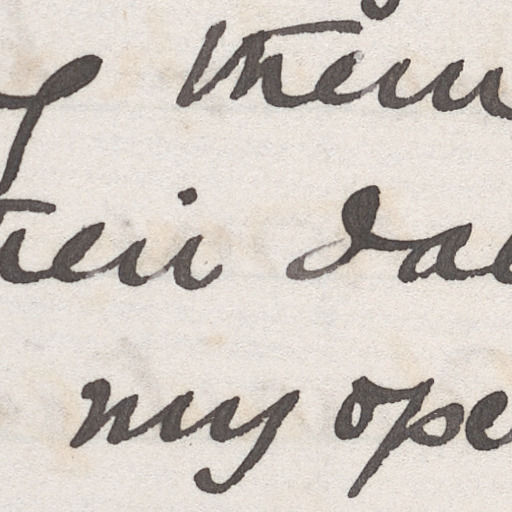 them
their da
my ope